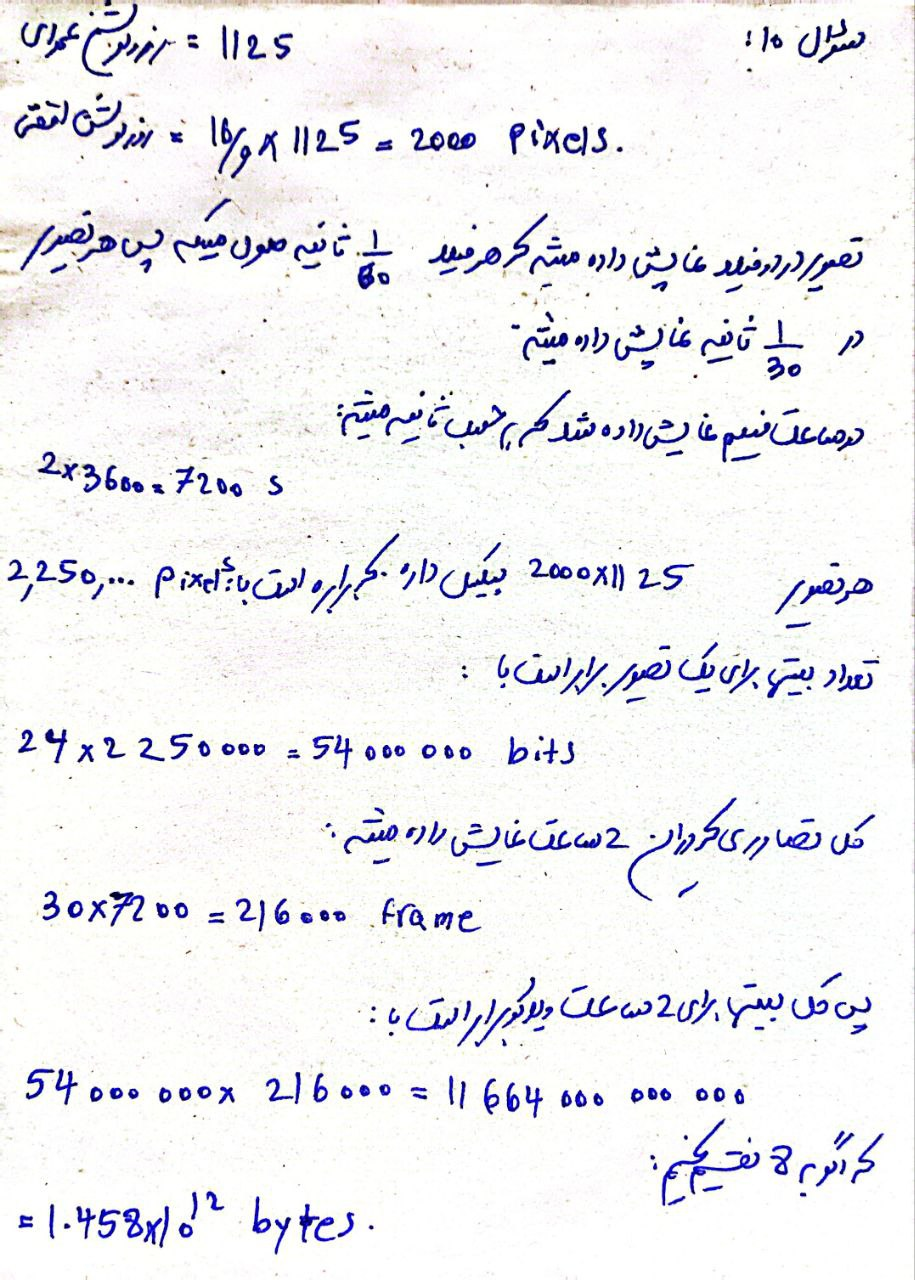 سوال 10:
رزولوشن عمودی = 1125
رزولوشن افقی = 16/9 x 1125 = 2000 pixels.
تصویر در دو فیلد نمایش داده میشه که هر فیلد 1/60 ثانیه طول میکشه پس هر تصویر
در 1/30 ثانیه نمایش داده میشه.
دو ساعت فیلم نمایش داده شد که بر حسب ثانیه میشه:
2x3600 = 7200 s
هر تصویر 2000x1125 پیکسل داره که برابره است با: 2,250,000 pixels
تعداد بیتها برای یک تصویر برابر است با :
24 x 2 250000 = 54 000 000 bits
کل تصاویری که در این 2 ساعت نمایش داده میشه :
30x7200 = 216000 frame
پس کل بیتها برای 2 ساعت ویدئو برابر است با :
54 000 000 x 216000 = 11 664 000 000 000
که اگر به 8 تقسیم کنیم :
= 1.458x10^12 bytes.